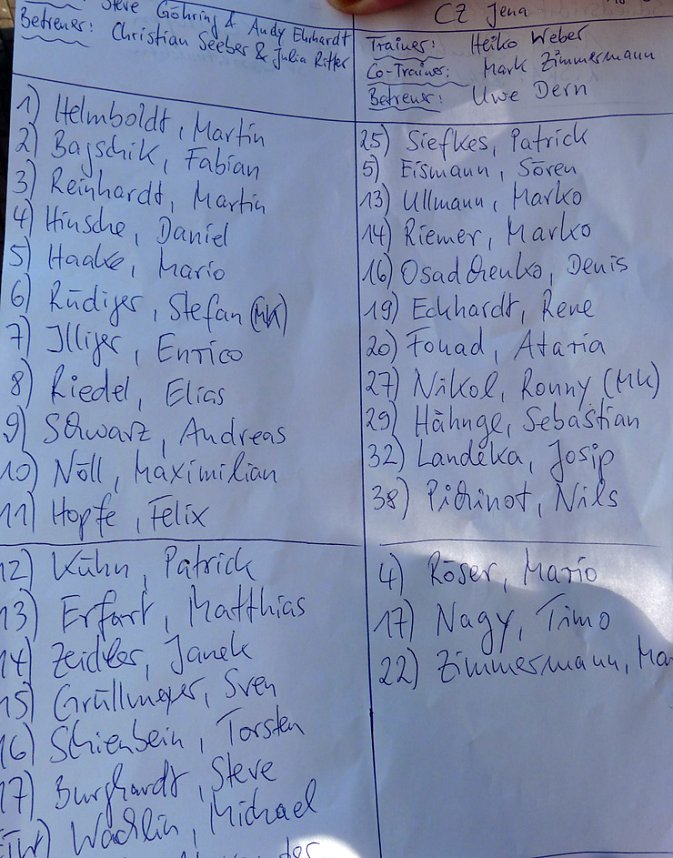 Steve Göhring & Andy Ehrhardt
Betreuer: Christian Seeber & Julia Ritter
1) Helmboldt, Martin
2) Bajschik, Fabian
3) Reinhardt, Martin
4) Hinsche, Daniel
5) Haake, Mario
6) Rüdiger, Stefan (MK)
7) Illiger, Enrico
8) Riedel, Elias
9) Schwarz, Andreas
10) Nöll, Maximilian
11) Hopfe, Felix
12) Kühn, Patrick
13) Erfurt, Matthias
14) Zeidler, Janek
15) Grüllmeyer, Sven
16) Schienbein, Torsten
17) Burghardt, Steve
Wachlin, Michael
CZ Jena
Trainer: Heiko Weber
Co-Trainer: Mark Zimmermann
Betreuer: Uwe Dern
25) Siefkes, Patrick
5) Eismann, Sören
13) Ullmann, Marko
14) Riemer, Marko
16) Osadchenko, Denis
19) Eckhardt, Rene
20) Fouad, Ataria
27) Nikol, Ronny (MK)
29) Hähnge, Sebastian
32) Landeka, Josip
38) Pichinot, Nils
4) Röser, Mario
17) Nagy, Timo
22) Zimmermann, Ma